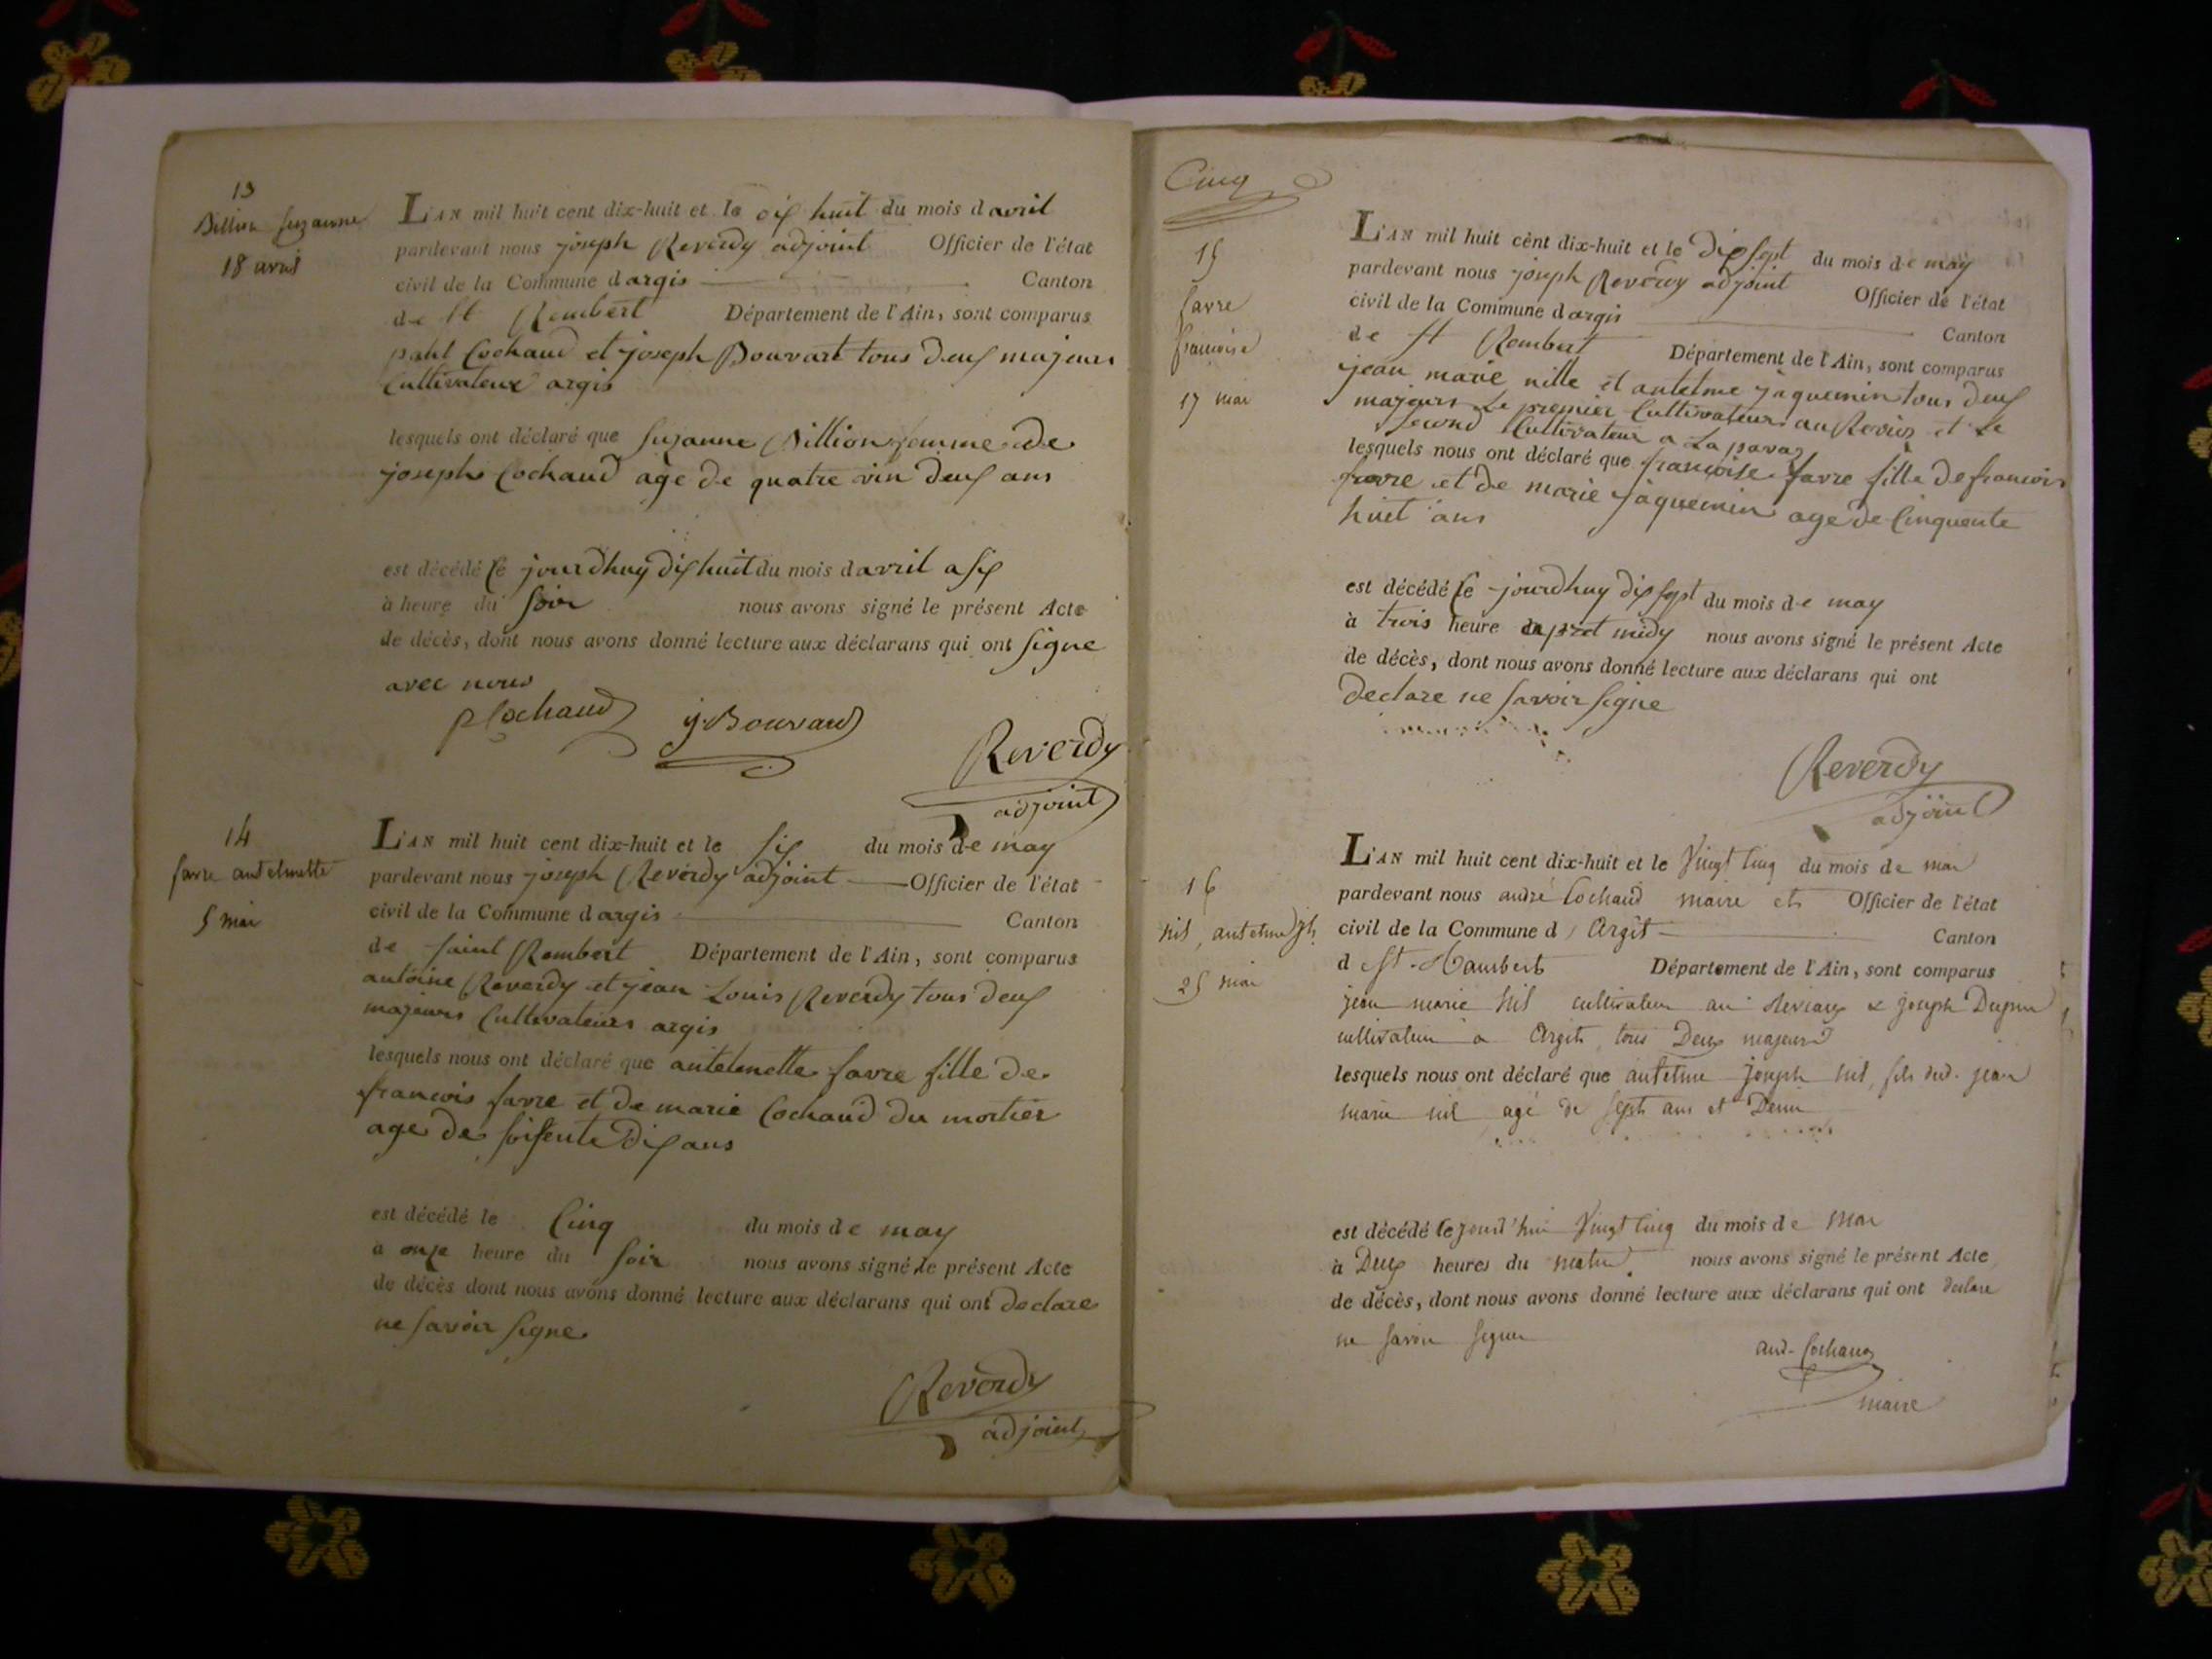 13
Billion Suzanne
18 avril
L'AN mil huit cent dix-huit et le dix huit du mois d avril
pardevant nous joseph Reverdy adjoint Officier de l'état
civil de la Commune d argis Canton
de St Rembert Département de l'Ain, sont comparus
paul Cochaud et joseph Bouvart tous deux majeurs
Cultivateur argis
lesquels ont déclaré que Suzanne Billion femme de
joseph Cochaud age de quatre vin deux ans
est décédé le jourdhuy dix huit du mois d avril a six
à heure du soir nous avons signé le présent Acte
de décès, dont nous avons donné lecture aux déclarans qui ont signe
avec nous
P Cochaud j Bouvard
Reverdy
adjoint
14
favre antelmette
5 mai
L'AN mil huit cent dix-huit et le six du mois de may
pardevant nous joseph Reverdy adjoint Officier de l'état
civil de la Commune d argis Canton
de saint Rembert Département de l'Ain, sont comparus
antoine Reverdy et jean Louis Reverdy tous deux
majeurs Cultivateurs argis
lesquels nous ont déclaré que antelmette favre fille de
francois favre et de marie Cochaud du mortier
age de soissente dix ans
est décédé le Cinq du mois de may
à onze heure du soir nous avons signé le présent Acte
de décès dont nous avons donné lecture aux déclarans qui ont declare
ne savoir signe
Reverdy
adjoint
Cinq
15
favre
francoise
17 mai
L'AN mil huit cent dix-huit et le dix sept du mois de may
pardevant nous joseph Reverdy adjoint Officier de l'état
civil de la Commune d argis Canton
de St Rembert Département de l'Ain, sont comparus
jean marie nille et antelme jaquemin tous deux
majeurs Le premier Cultivateur au Revios et Le
second Cultivateur a La pavaz
lesquels nous ont déclaré que francoise favre fille de francois
favre et de marie jaquemin age de Cinquente
huit ans
est décédé le jourdhuy dix sept du mois de may
à trois heure apret midy nous avons signé le présent Acte
de décès, dont nous avons donné lecture aux déclarans qui ont
declare ne savoir signe
Reverdy
adjoint
16
nil, antelme jh
25 mai
L'AN mil huit cent dix-huit et le vingt cinq du mois de mai
pardevant nous andré Cochaud maire et Officier de l'état
civil de la Commune d Argis Canton
d St Rambert Département de l'Ain, sont comparus
jean marie nil cultivateur au & joseph Dupin
cultivateur à Argis tous Deux majeurs
lesquels nous ont déclaré que antelme joseph nil, fils dud. jean
marie nil agé de sept ans et Demi
est décédé le jourd'hui vingt cinq du mois de mai
à Deux heures du matin nous avons signé le présent Acte
de décès, dont nous avons donné lecture aux déclarans qui ont declare
ne savoir signer
and. Cochaud
maire